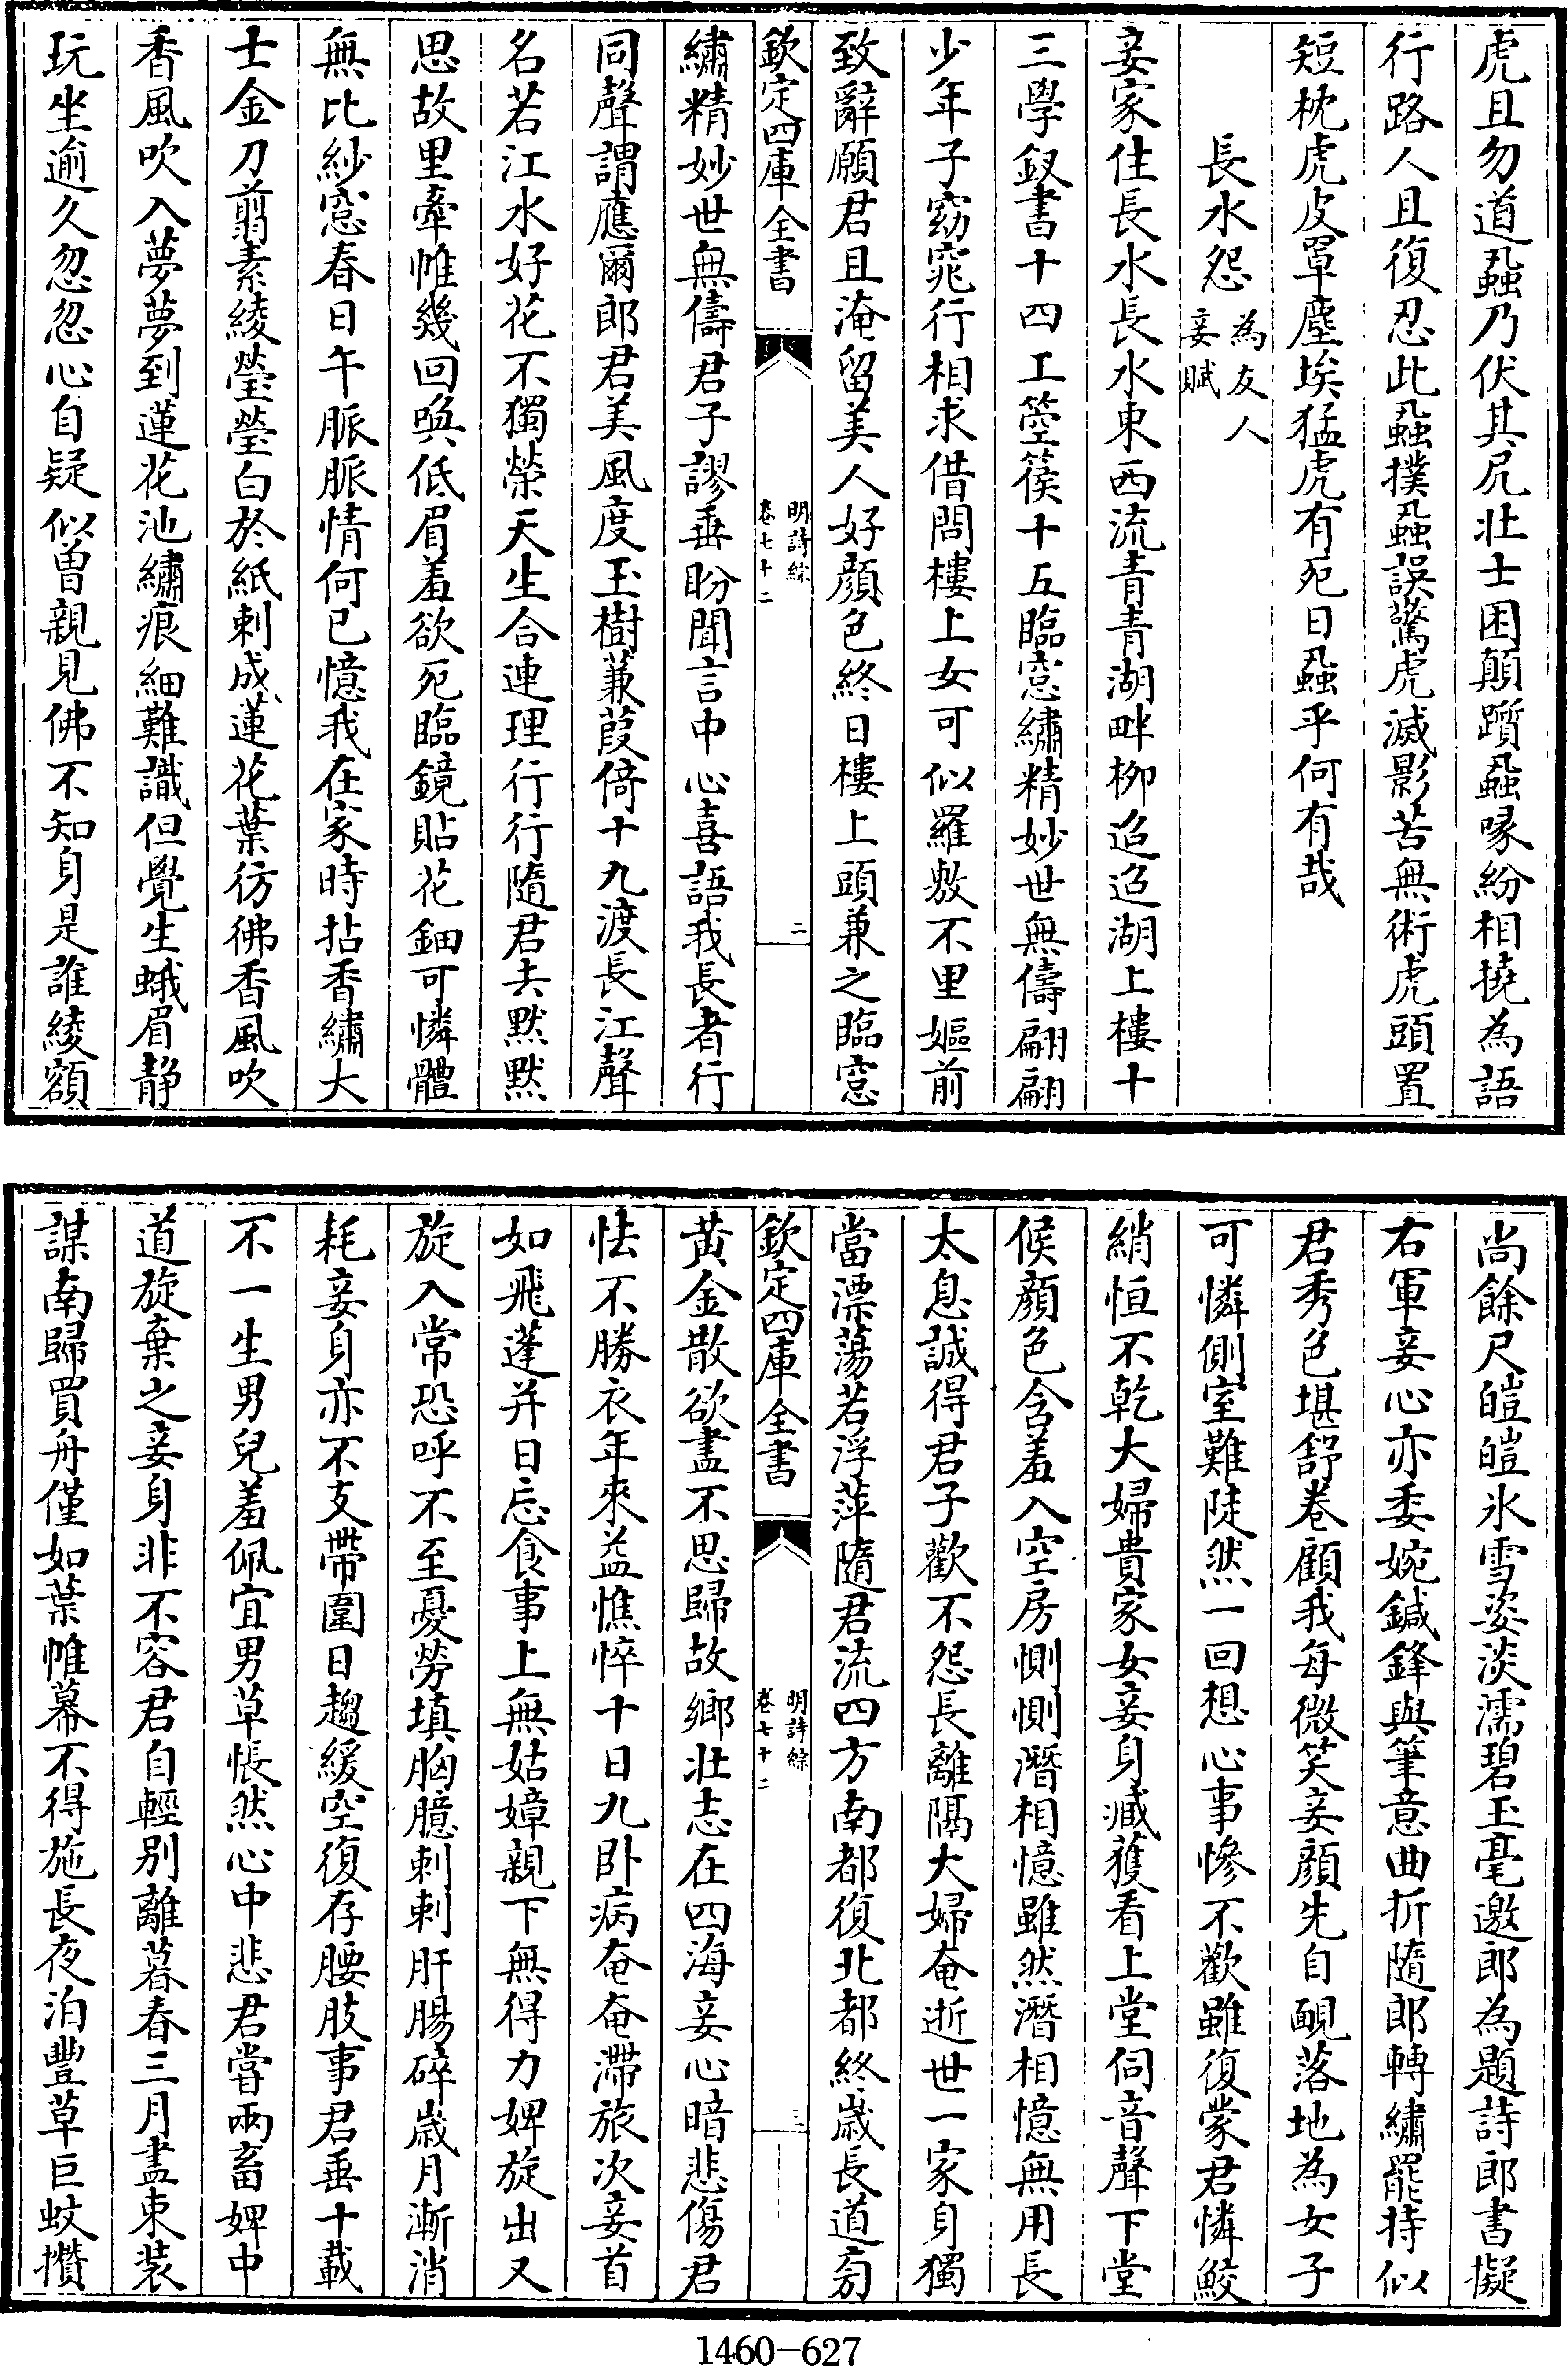 虎且勿道蝨乃伏其尻壯士困顛躓蝨喙紛相撓為語
行路人且復忍此蝨撲蝨誤驚虎滅影苦無術虎頭置
短枕虎皮罩塵埃猛虎有死日蝨乎何有哉
長水怨為友人
妾賦
妾家住長水長水東西流青青湖畔柳迢迢湖上樓十
三學釵書十四工箜篌十五臨窓繡精妙世無儔翩翩
少年子窈窕行相求借問樓上女可似羅敷不里嫗前
致辭願君且淹留美人好顔色終日樓上頭兼之臨窓
欽定四庫全書
明詩綜
卷七十二
二
繡精妙世無儔君子謬垂盼聞言中心喜語我長者行
同聲謂應爾郎君美風度玉樹蒹葭倚十九渡長江聲
名若江水好花不獨榮天生合連理行行隨君去黙黙
思故里牽帷幾回喚低眉羞欲死臨鏡貼花鈿可憐體
無比紗窓春日午脈脈情何已憶我在家時拈香繡大
士金刀翦素綾瑩瑩白於紙刺成蓮花葉彷彿香風吹
香風吹入夢夢到蓮花池繡痕細難識但覺生蛾眉靜
玩坐逾久忽忽心自疑似曾親見佛不知身是誰綾額
尚餘尺皚皚氷雪姿淡濡碧玉毫邀郎為題詩郎書擬
右軍妾心亦委婉鍼鋒與筆意曲折隨郎轉繡罷持似
君秀色堪舒卷顧我每微笑妾顔先自靦落地為女子
可憐側室難陡然一回想心事慘不歡雖復蒙君憐鮫
綃恒不乾大婦貴家女妾身臧獲看上堂伺音聲下堂
候顔色含羞入空房惻惻潛相憶雖然潛相憶無用長
太息誠得君子歡不怨長離隔大婦奄逝世一家身獨
當漂蕩若浮萍隨君流四方南都復北都終歲長道旁
欽定四庫全書
明詩綜
卷七十二
三
黃金散欲盡不思歸故鄉壯志在四海妾心暗悲傷君
怯不勝衣年來益憔悴十日九卧病奄奄滯旅次妾首
如飛蓬并日忘食事上無姑嫜親下無得力婢旋出又
旋入常恐呼不至憂勞填胸臆刺刺肝腸碎歲月漸消
耗妾身亦不支帶圍日趨緩空復存腰肢事君垂十載
不一生男兒羞佩宜男草悵然心中悲君嘗兩畜婢中
道旋棄之妾身非不容君自輕別離暮春三月盡束裝
謀南歸買舟僅如葉帷幕不得施長夜泊豐草巨蚊攢
1460-627